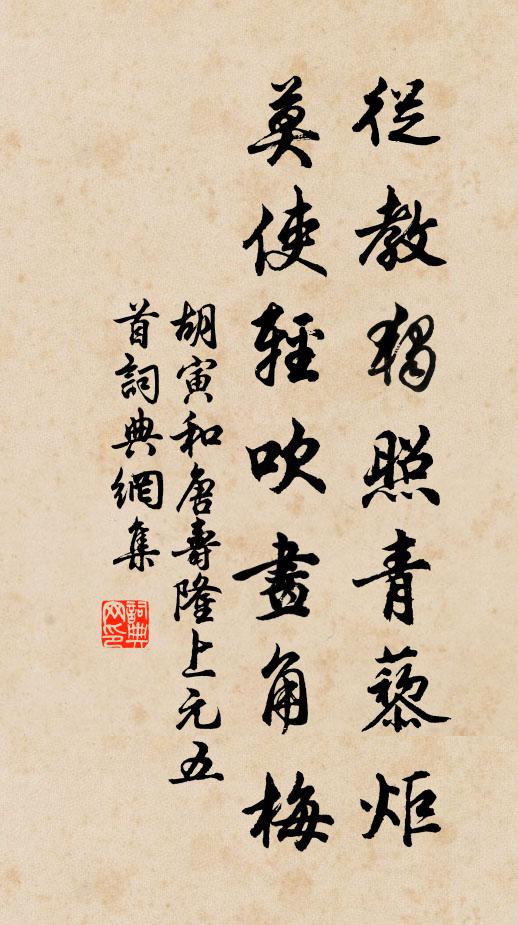 從教獨照青藜炬
莫使輕吹畫角梅
胡寅和唐壽隆上元五
首詞典網集
詞典
网印